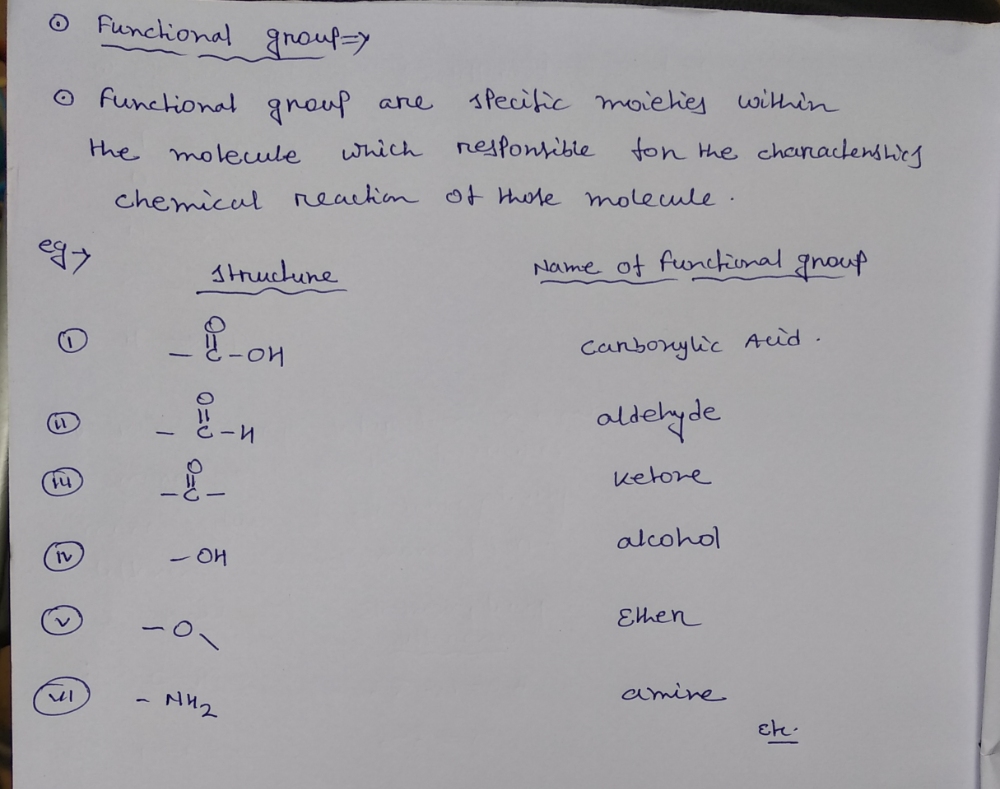 ⊙ Functional group⇒
⊙ Functional group are specific moieties within
the molecule which responsible for the characteristics
chemical reaction of those molecule.
eg→
Structure Name of functional group
(i) –C(=O)–OH Carboxylic Acid.
(ii) –C(=O)–H aldehyde
(iii) –C(=O)– Ketone
(iv) –OH alcohol
(v) –O\ Ether
(vi) –NH₂ amine
Etc.